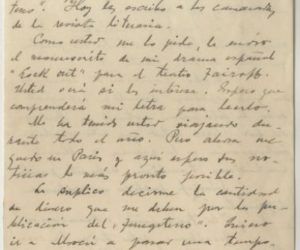 teno". Hoy les escribo a los camaradas
de la revista literaria.
Como usted me lo pide, le envío
el manuscrito de mi drama español
"Lock out" para el teatro Zairoff.
Usted verá si les interesa. Espero que
comprenderá mi letra para leerlo.
Me ha tenido usted viajando du-
rante todo el año. Pero ahora me
quedo en París y aquí espero sus no-
ticias lo más pronto posible.
Le suplico decirme la cantidad
de dinero que me deben por la pu-
blicación del
ir a Moscú a pasar una tempo.